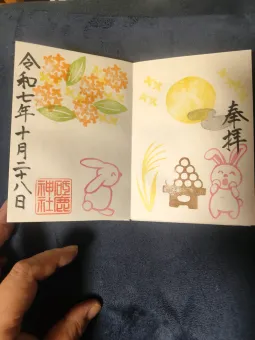 奉拝
令和七年十月二十八日
神社